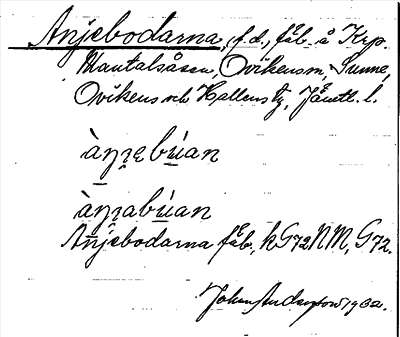 Anjebodarna, (f.d.) fäb. å Krp.
Mantalsåsen, Ovikens sn, Sunne,
Ovikens och Hallens tg, Jämtl. l.
àn̠ɲebú̠an
àn̠ɲabú̠an
Anjebodarna fäb. kG72NM, G72.
1932.